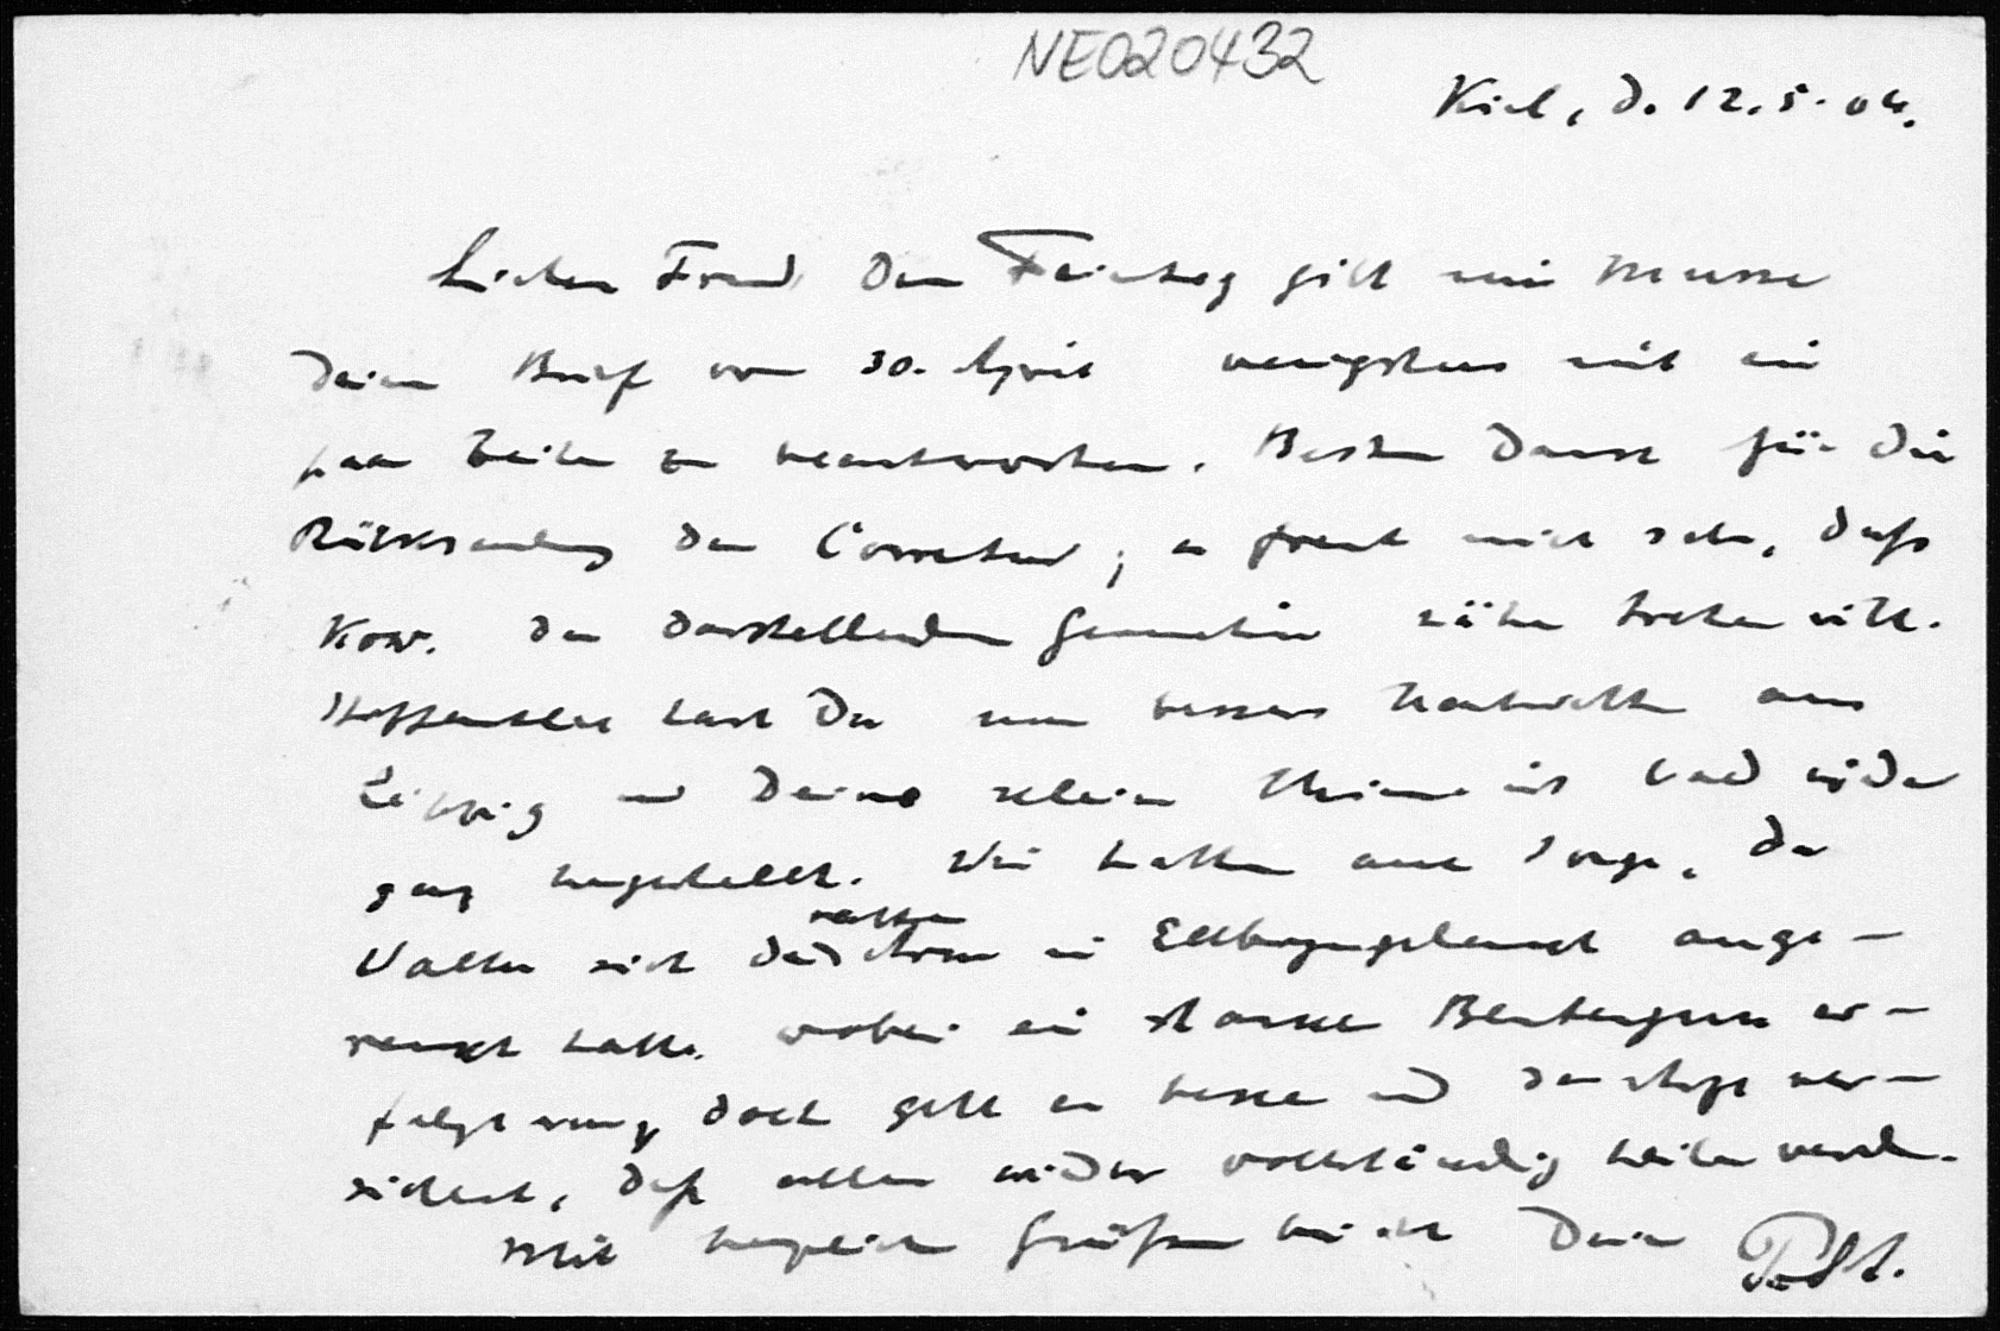 NE020432
Kiel, d. 12.5.04.
Lieber Freund, Der Feiertag gibt mir Musse
Deinen Brief vom 30. April wenigstens mit ein
paar Zeilen zu beantworten. Besten Dank für die
Rücksendung der Correctur; es freut mich sehr, daß
Kow. der darstellenden Geometrie näher treten will.
Hoffentlich hast Du nun bessere Nachrichten aus
Leipzig und Deine kleine ist bald wieder
ganz hergestellt. Wir hatten auch Sorge, da
Walter sich den rechten Arm im Ellbogengelenk ausge-
renkt hatte, wobei ein starker Bluterguss er-
folgt war, doch geht es besser und der Arzt ver-
sichert, daß alles wieder vollständig heilen werde.
Mit herzlichen Grüßen bin ich Dein